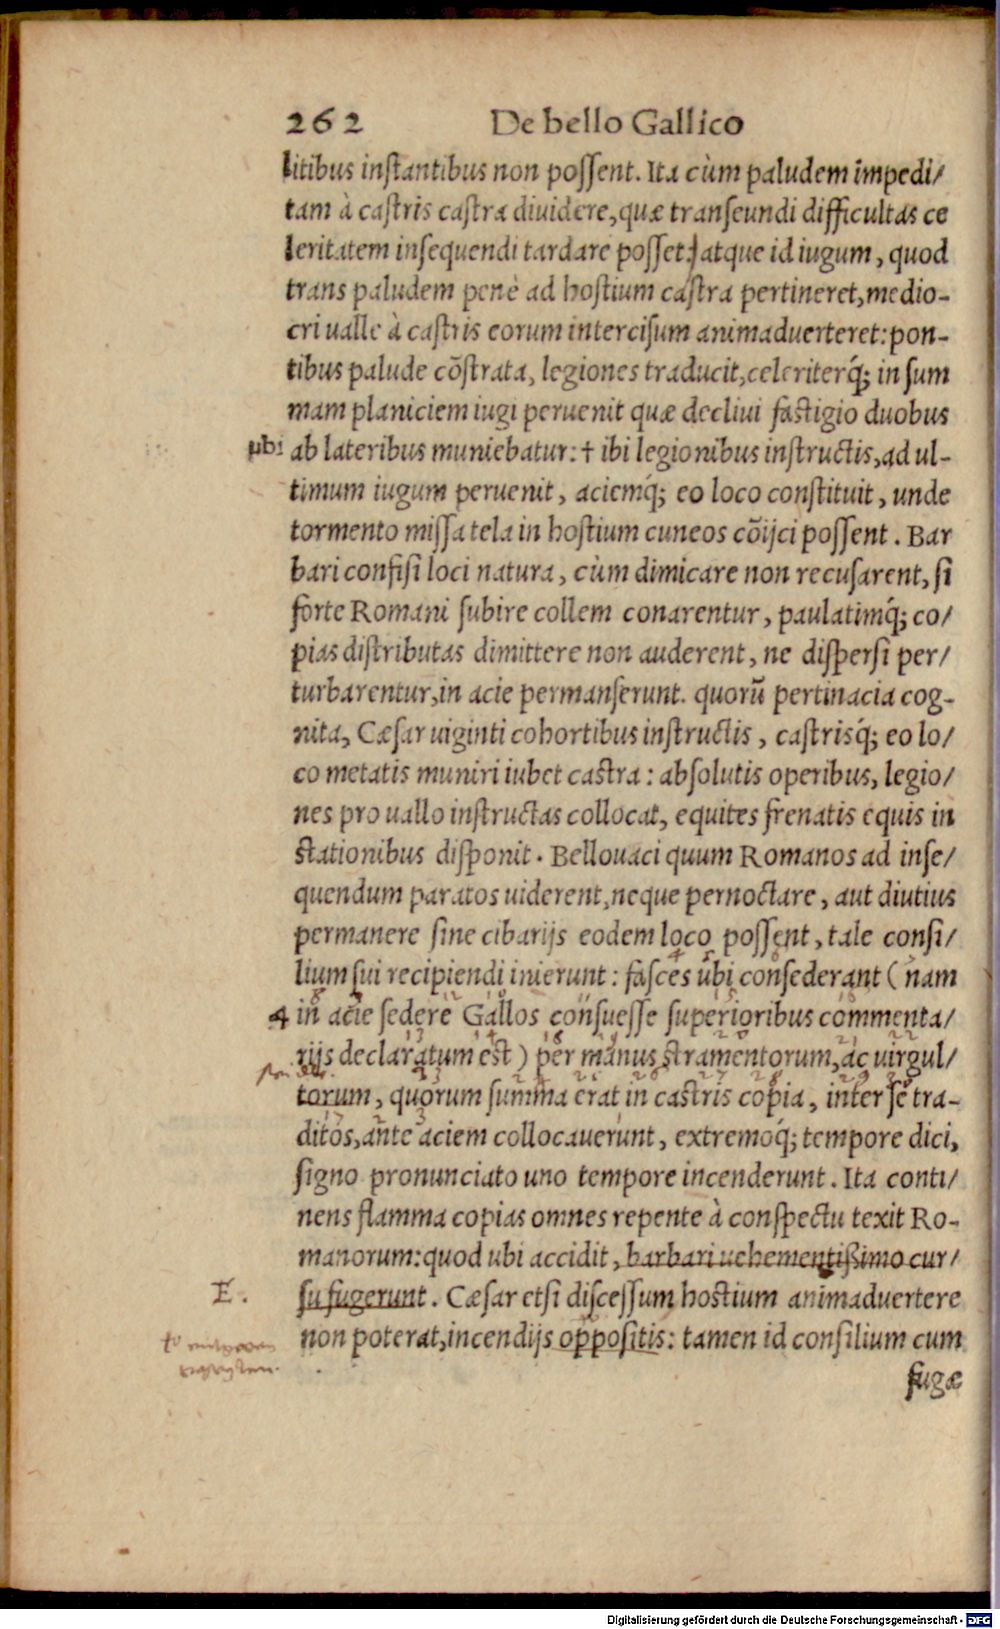 262 De bello Gallico
litibus instantibus non possent. Ita cùm paludem impedi/
tam à castris castra dividere, quæ transeundi difficultas ce
leritatem insequendi tardare posset: atque id iugum, quod
trans paludem penè ad hostium castra pertineret, medio-
cri valle à castris eorum intercisum animadverteret: pon-
tibus palude cõstrata, legiones traducit, celeriterq́; in sum
mam planiciem iugi pervenit quæ declivi fastigio duobus
ubi ab lateribus muniebatur: † ibi legionibus instructis, ad ul-
timum iugum pervenit, aciemq́; eo loco constituit, unde
tormento missa tela in hostium cuneos cõijci possent. Bar
bari confisi loci natura, cùm dimicare non recusarent, si
forte Romani subire collem conarentur, paulatimq́; co/
pias distributas dimittere non auderent, ne dispersi per/
turbarentur, in acie permanserunt. quorũ pertinacia cog-
nita, Cæsar viginti cohortibus instructis, castrisq́; eo lo/
co metatis muniri iubet castra: absolutis operibus, legio/
nes pro vallo instructas collocat, equites frenatis equis in
stationibus disponit. Bellovaci quum Romanos ad inse/
quendum paratos viderent, neque pernoctare, aut diutius
permanere sine cibarijs eodem loco possent, tale consi/
lium sui recipiendi inierunt: fasces ubi consederant (nam
4 in acie sedere Gallos consuesse superioribus commenta/
rijs declaratum est) per manus stramentorum, ac virgul/
torum, quorum summa erat in castris copia, inter se tra-
ditos, ante aciem collocaverunt, extremoq́; tempore diei,
signo pronunciato uno tempore incenderunt. Ita conti/
nens flamma copias omnes repente à conspectu texit Ro-
manorum: quod ubi accidit, barbari vehementißimo cur/
E. su fugerunt. Cæsar etsi discessum hostium animadvertere
non poterat, incendijs oppositis: tamen id consilium cum
fugæ
Digitalisierung gefördert durch die Deutsche Forschungsgemeinschaft - DFG